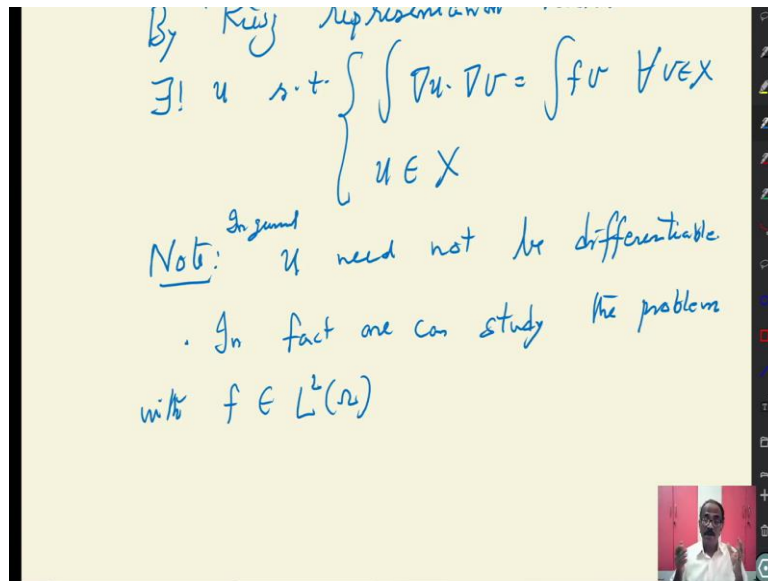 By Riesz representation
∃! u s.t. { ∫ ∇u. ∇v = ∫ f v ∀ v ∈ X
u ∈ X
In general
Note: u need not be differentiable
. In fact one can study the problem
with f ∈ L²(Ω)